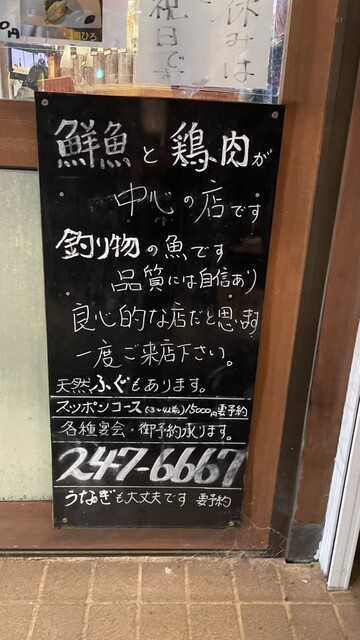 休みは
祝日です
鮮魚と鶏肉が
中心の店です
釣り物の魚です
品質には自信あり
良心的な店だと思います
一度ご来店下さい。
天然ふぐもあります。
スッポンコース(3〜4人前)15000円要予約
各種宴会・御予約承ります。
247-6667
うなぎも大丈夫です 要予約